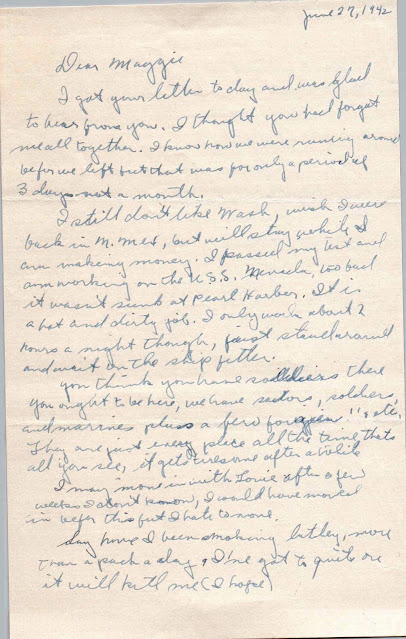 June 27, 1942
Dear Maggie
I got your letter today and was glad
to hear from you. I thought you had forgot
me all together. I know how we were running around
befor we left but that was for only a period of
3 days not a month.
I still don't like Wash, wish I were
back in N. Mex, but will stay while I
am making money. I passed my test and
am working on the U.S.S. too bad
it wasn't sunk at Pearl Harbor. It is
a hot and dirty job. I only work about 2
hours a night though, just stand around
and wait on the ship fitter.
you think you have soldiers there
you ought to be here, we have soldiers,
and marines pluss a few foreign etc.
They are just every place all the time, thats
all you see, it gets tiresome after a while
I may move in with after a few
weeks I don't know, I would have moved
in befor this but I hate to move.
have I been smoking latley, more
than a pack a day, I've got to quite or
it will kill me (I hope)